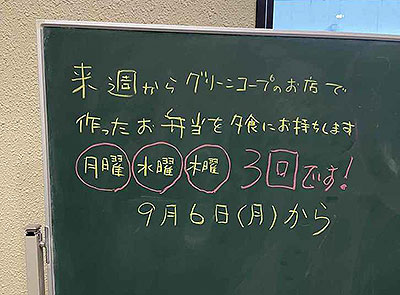 来週からグリーンコープのお店で
作ったお弁当を夕食にお持ちします
月曜 水曜 木曜 3回です!
9月6日(月)から